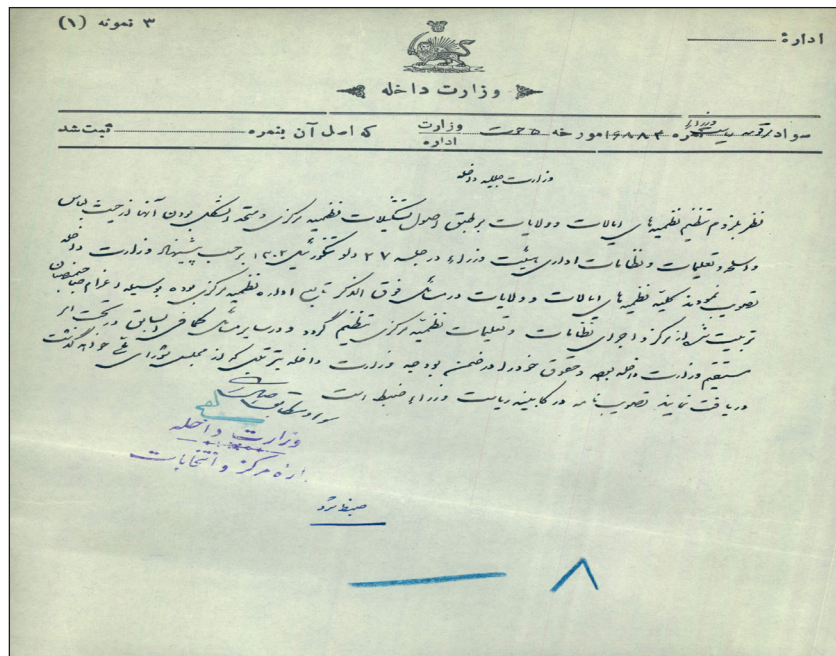 ۳ نمونه (۱)
اداره
وزارت داخله
سواد رقعه ریاست وزراء نمره ۱۶۸۸۳ مورخه ۵ حوت وزارت اداره که اصل آن بنمره ثبت شد
وزارت جلیله داخله
نظر بلزوم تنظیم نظمیه های ایالات و ولایات بر طبق اصول تشکیلات نظمیه مرکزی و متحد الشکل بودن آنها از حیث لباس
و اسلحه و تعلیمات و نظامات اداری هیئت وزراء در جلسه ۲۷ دلو تنگوزئیل ۱۳۰۲ بر حسب پیشنهاد وزارت داخله
تصویب نمودند کلیه نظمیه های ایالات و ولایات در مسائل فوق الذکر تابع اداره نظمیه مرکزی بوده بوسیله اعزام صاحبمنصبان
تربیت شده از مرکز و اجرای نظامات و تعلیمات نظمیه مرکزی تنظیم گردد و در سایر مسائل کمافی السابق در تحت امر
مستقیم وزارت داخله بوده و حقوق خود را در ضمن بودجه وزارت داخله بترتیبی که از مجلس شورای ملی خواهد گذشت
دریافت نمایند تصویب نامه در کابینه ریاست وزراء ضبط است
سواد مطابق اصل است
وزارت داخله
اداره مرکز و انتخابات
ضبط شود
۸